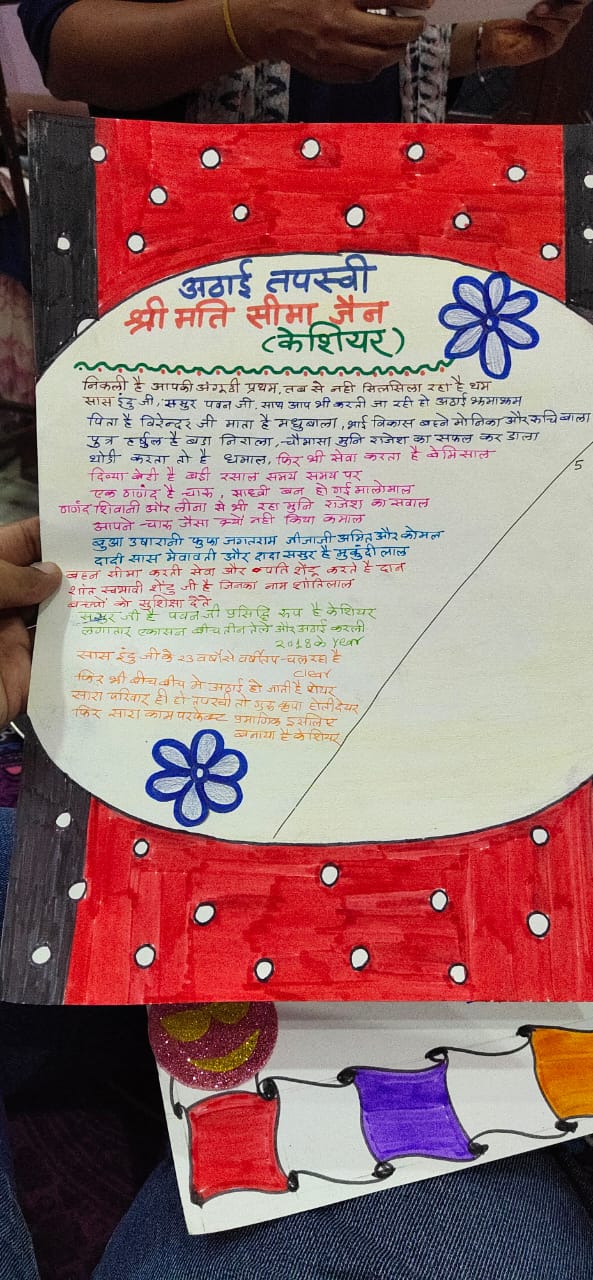 अठाई तपस्वी
श्री मति सीमा जैन
(केशियर)
निकली है आपकी अंगूठी प्रथम, तब से नही सिलसिला रहा है थम
सास इंदु जी, ससुर पवन जी, साथ आप भी करती जा रही हो अठाई क्रमाक्रम
पिता है विरेन्दर जी माता है मधुबाला, भाई विकास बहने मोनिका और रुचि बाला
पुत्र हर्षुल है बड़ा निराला, चौमासा मुनि राजेश का सफल कर डाला
थोड़ी करता तो है धमाल, फिर भी सेवा करता है बेमिसाल
दिव्या बेटी है बड़ी रसाल समय समय पर
एक ठाणंद है चारू, साध्वी बन हो गई मालोमाल
ठाणंद शिवानी और लीना से भी रहा मुनि राजेश का सवाल
आपने चारू जैसा क्यों नही किया कमाल
बुआ उषारानी फुफा जगतराम जीजाजी अमित और कोमल
दादी सास मेवावती और दादा ससुर है मुकुंदी लाल
बहन सीमा करती सेवा और पति शेंटू करते है दान
शांत स्वभावी शेंटू जी है जिनका नाम शांतिलाल
बच्चों को सुशिक्षा देते
ससुर जी है पवन जी प्रसिद्धि रूप है केशियर
लगातार एकासन बीच तीन तेले और अठाई करली
2018 के year
सास इंदु जी के 23 वर्षों से वर्षीतप चल रहा है
clear
फिर भी बीच बीच मे अठाई हो जाती है शेयर
सारा परिवार ही हो तपस्वी तो गुरु कृपा होती देयर
फिर सारा काम परफेक्ट प्रमाणिक इसलिए
बनाया है केशियर
5